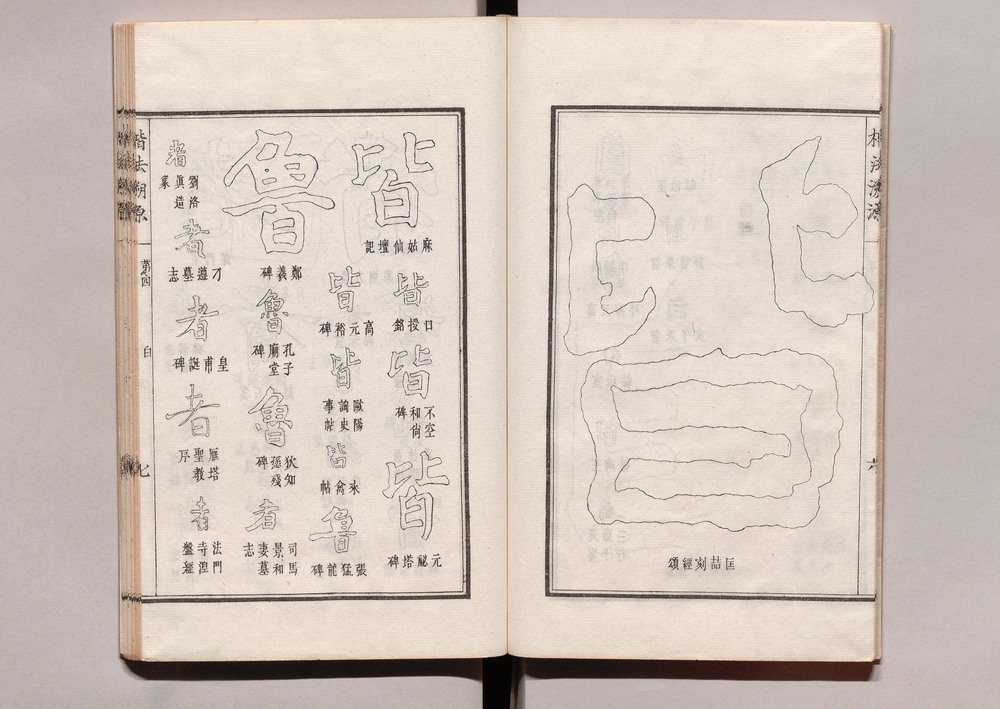 皆
匡喆刻經頌
楷法溯源
皆
麻姑仙壇記
皆
口授銘
皆
不空和尙碑
皆
元祕塔碑
皆
高元裕碑
皆
歐陽詢史事帖
皆
來禽帖
魯
張猛龍碑
魯
鄭羲碑
魯
孔子廟堂碑
魯
狄知愻碑
者
司馬景和妻墓志
者
劉洛眞造
者
刁遵墓志
者
皇甫誕碑
者
雁塔聖教序
者
法門寺
楷法溯原
第四
白
七